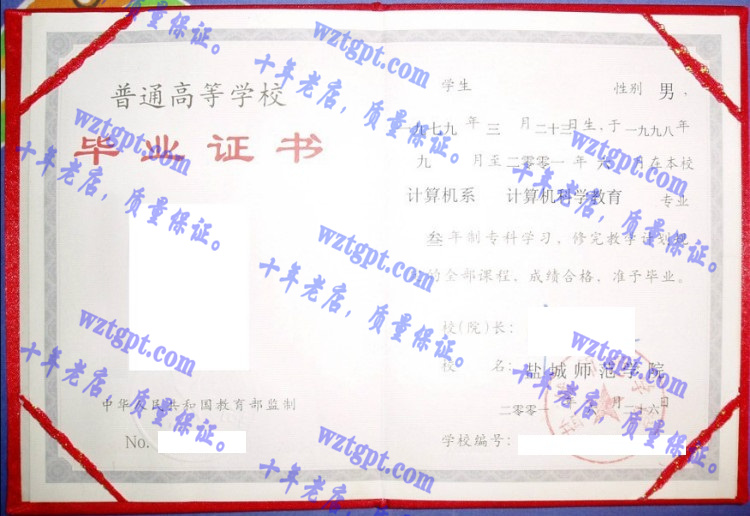 普通高等学校
毕业证书
中华人民共和国教育部监制
No.
学生 性别 男，
九七九年三月二十二日生，于一九九八年
九月至二零零一年六月在本校
计算机系 计算机科学教育 专业
叁年制专科学习，修完教学计划规
的全部课程、成绩合格，准予毕业。
校(院)长：
校名：盐城师范学院
二零零一 月二十六日
学校编号：
wztgpt.com
十年老店，质量保证。
wztgpt.com
十年老店，质量保证。
wztgpt.com
十年老店，质量保证。
wztgpt.com
十年老店，质量保证。
wztgpt.com
十年老店，质量保证。
wztgpt.com
十年老店，质量保证。